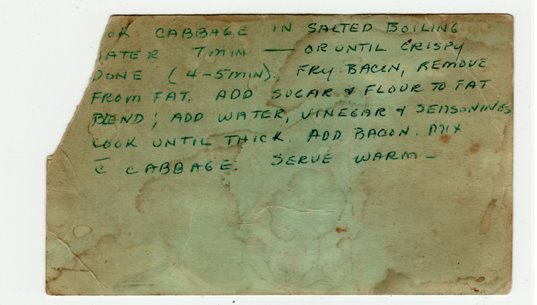 OK CABBAGE IN SALTED BOILING
ATER 7 MIN — OR UNTIL CRISPY
DONE (4-5 MIN). FRY BACON, REMOVE
FROM FAT. ADD SUGAR & FLOUR TO FAT
BLEND; ADD WATER, VINEGAR & SEASONINGS
COOK UNTIL THICK. ADD BACON. MIX
c̄ CABBAGE. SERVE WARM —